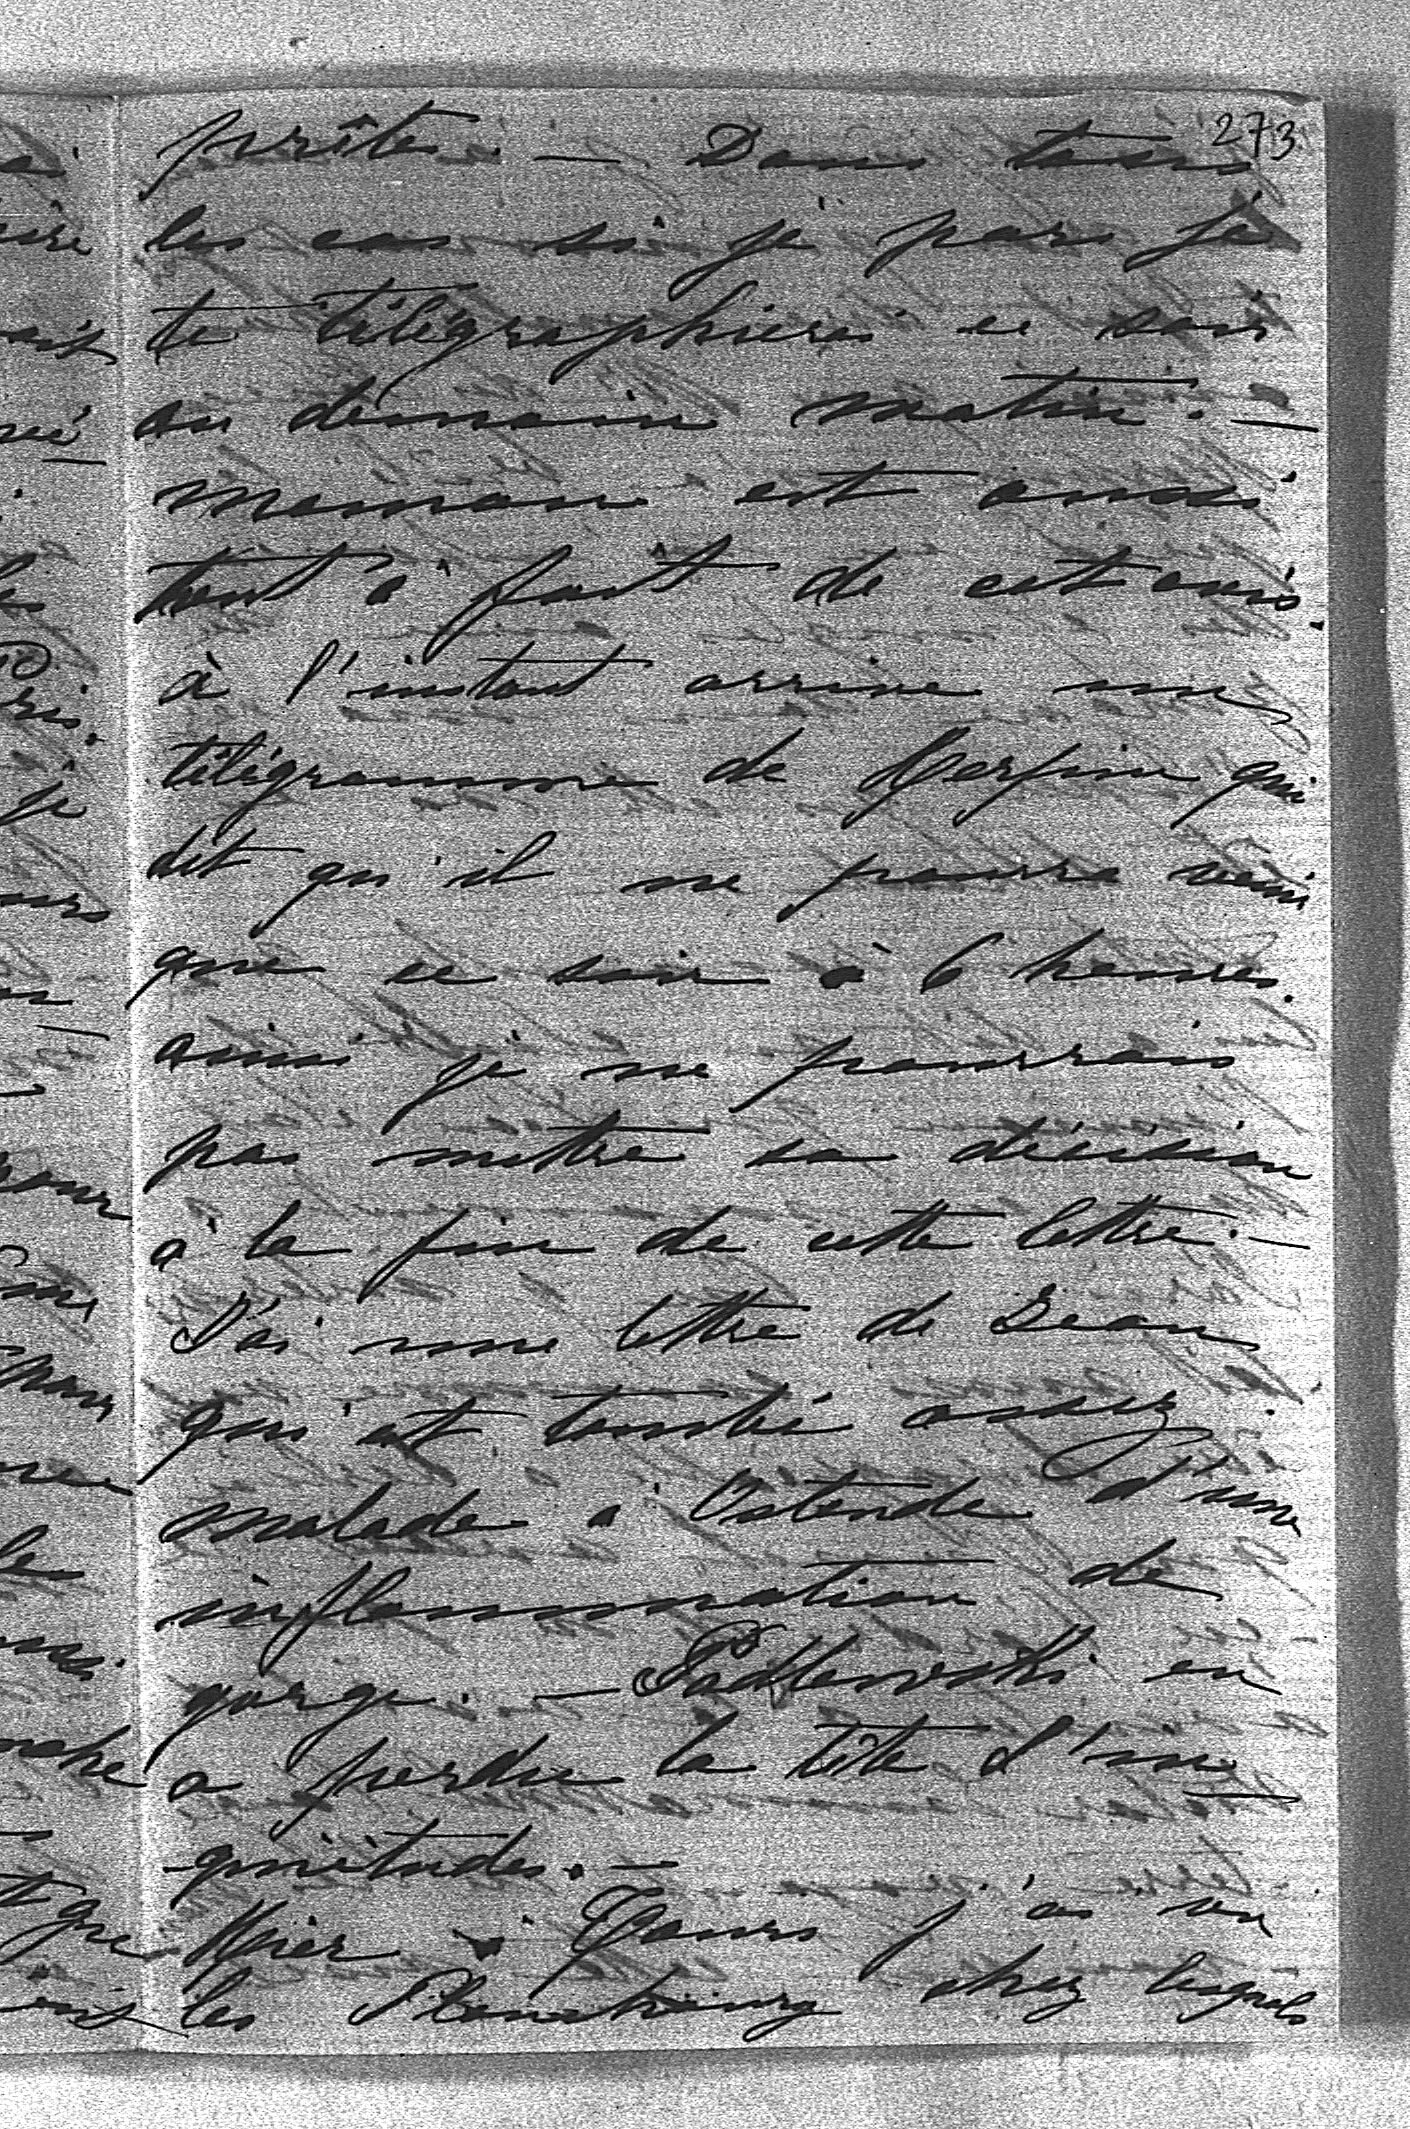 273
prête. — Dans tous
les cas si je pars je
te télégraphierai ce soir
ou demain matin. —
maman est aussi
tout à fait de cet avis.
à l'instant arrive un
télégramme de qui
dit qu'il ne pourra venir
que ce soir à 6 heures.
ainsi je ne pourrais
pas mettre sa décision
à la fin de cette lettre. —
J'ai une lettre de Jean
qui est tombé assez
malade à Ostende d'une
inflammation de
gorge. — Padlewski en
a perdu la tête d'in-
-quiétudes. —
Hier à Tours j'ai vu
les chez lesquels